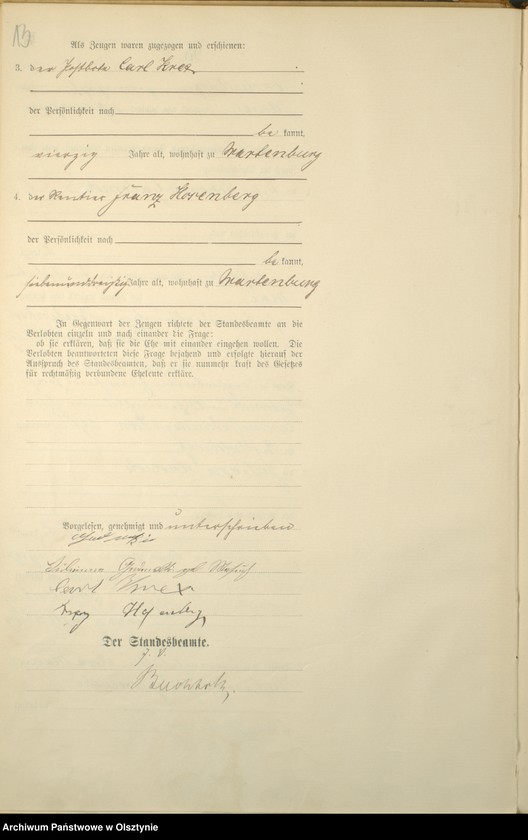 13
Als Zeugen waren zugezogen und erschienen:
3. der Postbote Carl
der Persönlichkeit nach
be kannt,
vierzig Jahre alt, wohnhaft zu Wartenburg
4. der Rentier Franz Hosenberg
der Persönlichkeit nach
be kannt,
siebenunddreißig Jahre alt, wohnhaft zu Wartenburg
In Gegenwart der Zeugen richtete der Standesbeamte an die
Verlobten einzeln und nach einander die Frage:
ob sie erklären, daß sie die Ehe mit einander eingehen wollen. Die
Verlobten beantworteten diese Frage bejahend und erfolgte hierauf der
Ausspruch des Standesbeamten, daß er sie nunmehr kraft des Gesetzes
für rechtmäßig verbundene Eheleute erkläre.
Vorgelesen, genehmigt und unterschrieben
Carl
Franz
Der Standesbeamte.
J. V.
Buchholz.
Archiwum Państwowe w Olsztynie